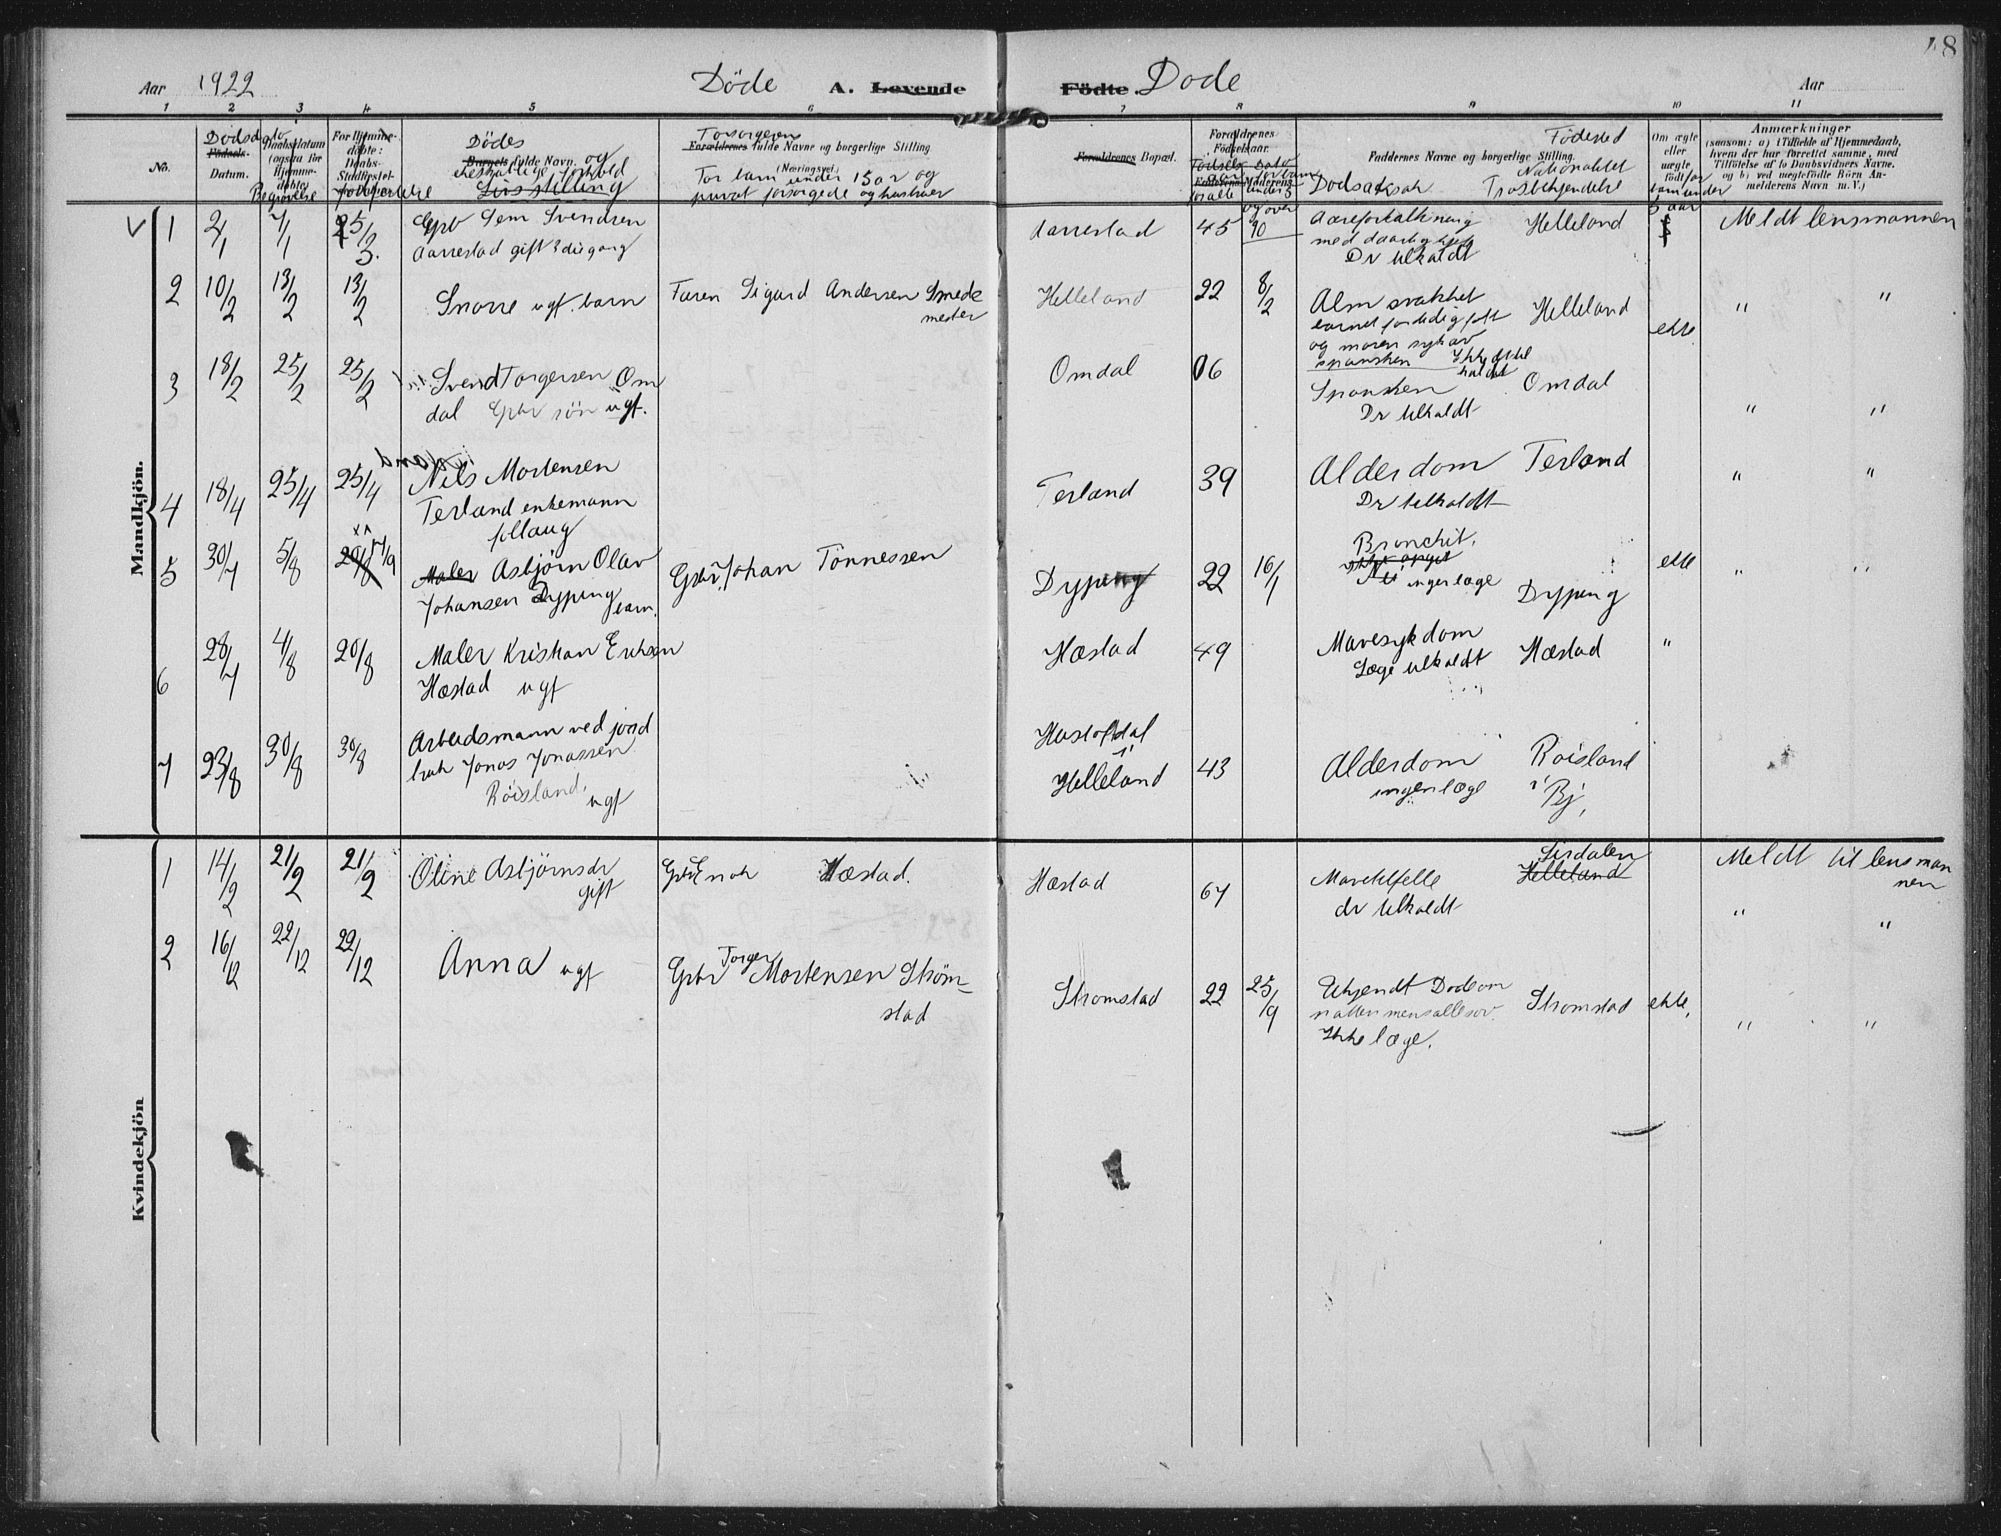 48
Aar 1922
Döde A. Levende
Födte. Dode
Aar
1 2 3 4 5 6 7 8 9 10 11
No.
Dodsdato
Födsels-
Datum.
Daabsdatum
(ogsaa for
Hjemme-
døbte)
Begravelse
For Hjemme-
døbte:
Daabs-
Stadfæstel-
Jordfæstelse
Dödes
Barnets fulde Navn og
ekteskablige forhold
Livsstilling
Forsorgeren
Forældrenes fulde Navne og borgerlige Stilling
(Næringsvei)
For barn under 15 ar og
privat forsorgede og hustruer
Forældrenes Bopæl.
Forældrenes
Födselsaar.
Födsels dato
Faderens Moderens
for alle under 5
og over
90
Födested
Faddernes Navne og borgerlige Stilling
Nationalitet
Dodsaarsak Trosbekjendelse
Om ægte
eller
uægte
født for
barn under
5 aar
Anmærkninger
(saasom: a) i Tilfælde af Hjemmedaab,
hvem der har forrettet samme, med
Tilföielse af to Daabsvidners Navne.
og b) ved uægtefödte Börn An-
melderens Navn m. V.)
Mandkjön.
1 2/1 7/1 25/3. Gbr Sem Svendsen
Aarrestad gift 3die gang
Aarrestad 45
Aareforkalkning
med daarlig hjerte
Dr tilkaldt
Helleland
Meldt lensmannen
2 10/2 13/2 13/2 Snorre ugf. barn Faren Sigurd Andersen Smede
mester
Helleland 22 8/2 Alm svakhet
barnet fortidig født
og moren syk av
spansken Ikke dr til
kaldt
Helleland ekte " "
3 18/2 25/2 25/2 Svend Torgersen Om
dal Gbr sön ugf.
Omdal 06 Spansken
Dr tilkaldt
Omdal " "
4 18/4 25/4 25/4 Nils Mortensen
Terland enkemann
follaug
Terland 39 Alderdom
Dr tilkaldt
Terland " "
5 30/7 5/8 20/8 17/9 Maler Asbjørn Olav
Johansen Dyping barn.
Gbr. Johan Tönnessen
Dyping 22 16/1 Bronchit.
Nei ingen læge
Dyping ekte " "
6 28/7 4/8 20/8 Maler Kristian Eriksen
Hæstad ugf
Hæstad 49 Mavesykdom
Læge tilkaldt
Hæstad "
7 23/8 30/8 30/8 Arbeidsmann ved jord
bruk Jonas Jonassen
Röisland, ugf
i
Helleland 43 Alderdom
ingen læge
Roisland
i Bj,
Kvindekjön
1 14/2 21/2 21/2 Oline Asbjörnsdr
gift
Gbr Enok Hæstad.
Hæstad 67 Mavetilfelle
dr tilkaldt
Sirdalen
Helleland
Meldt til lensman
nen
" "
2 16/12 22/12 22/12 Anna ugf
Gbr Torger Mortensen Ström-
stad
Stromstad 22 25/9 Ukjendt Dode om
natten mens alle sov.
Ikke læge.
Stromstad ekte, " "